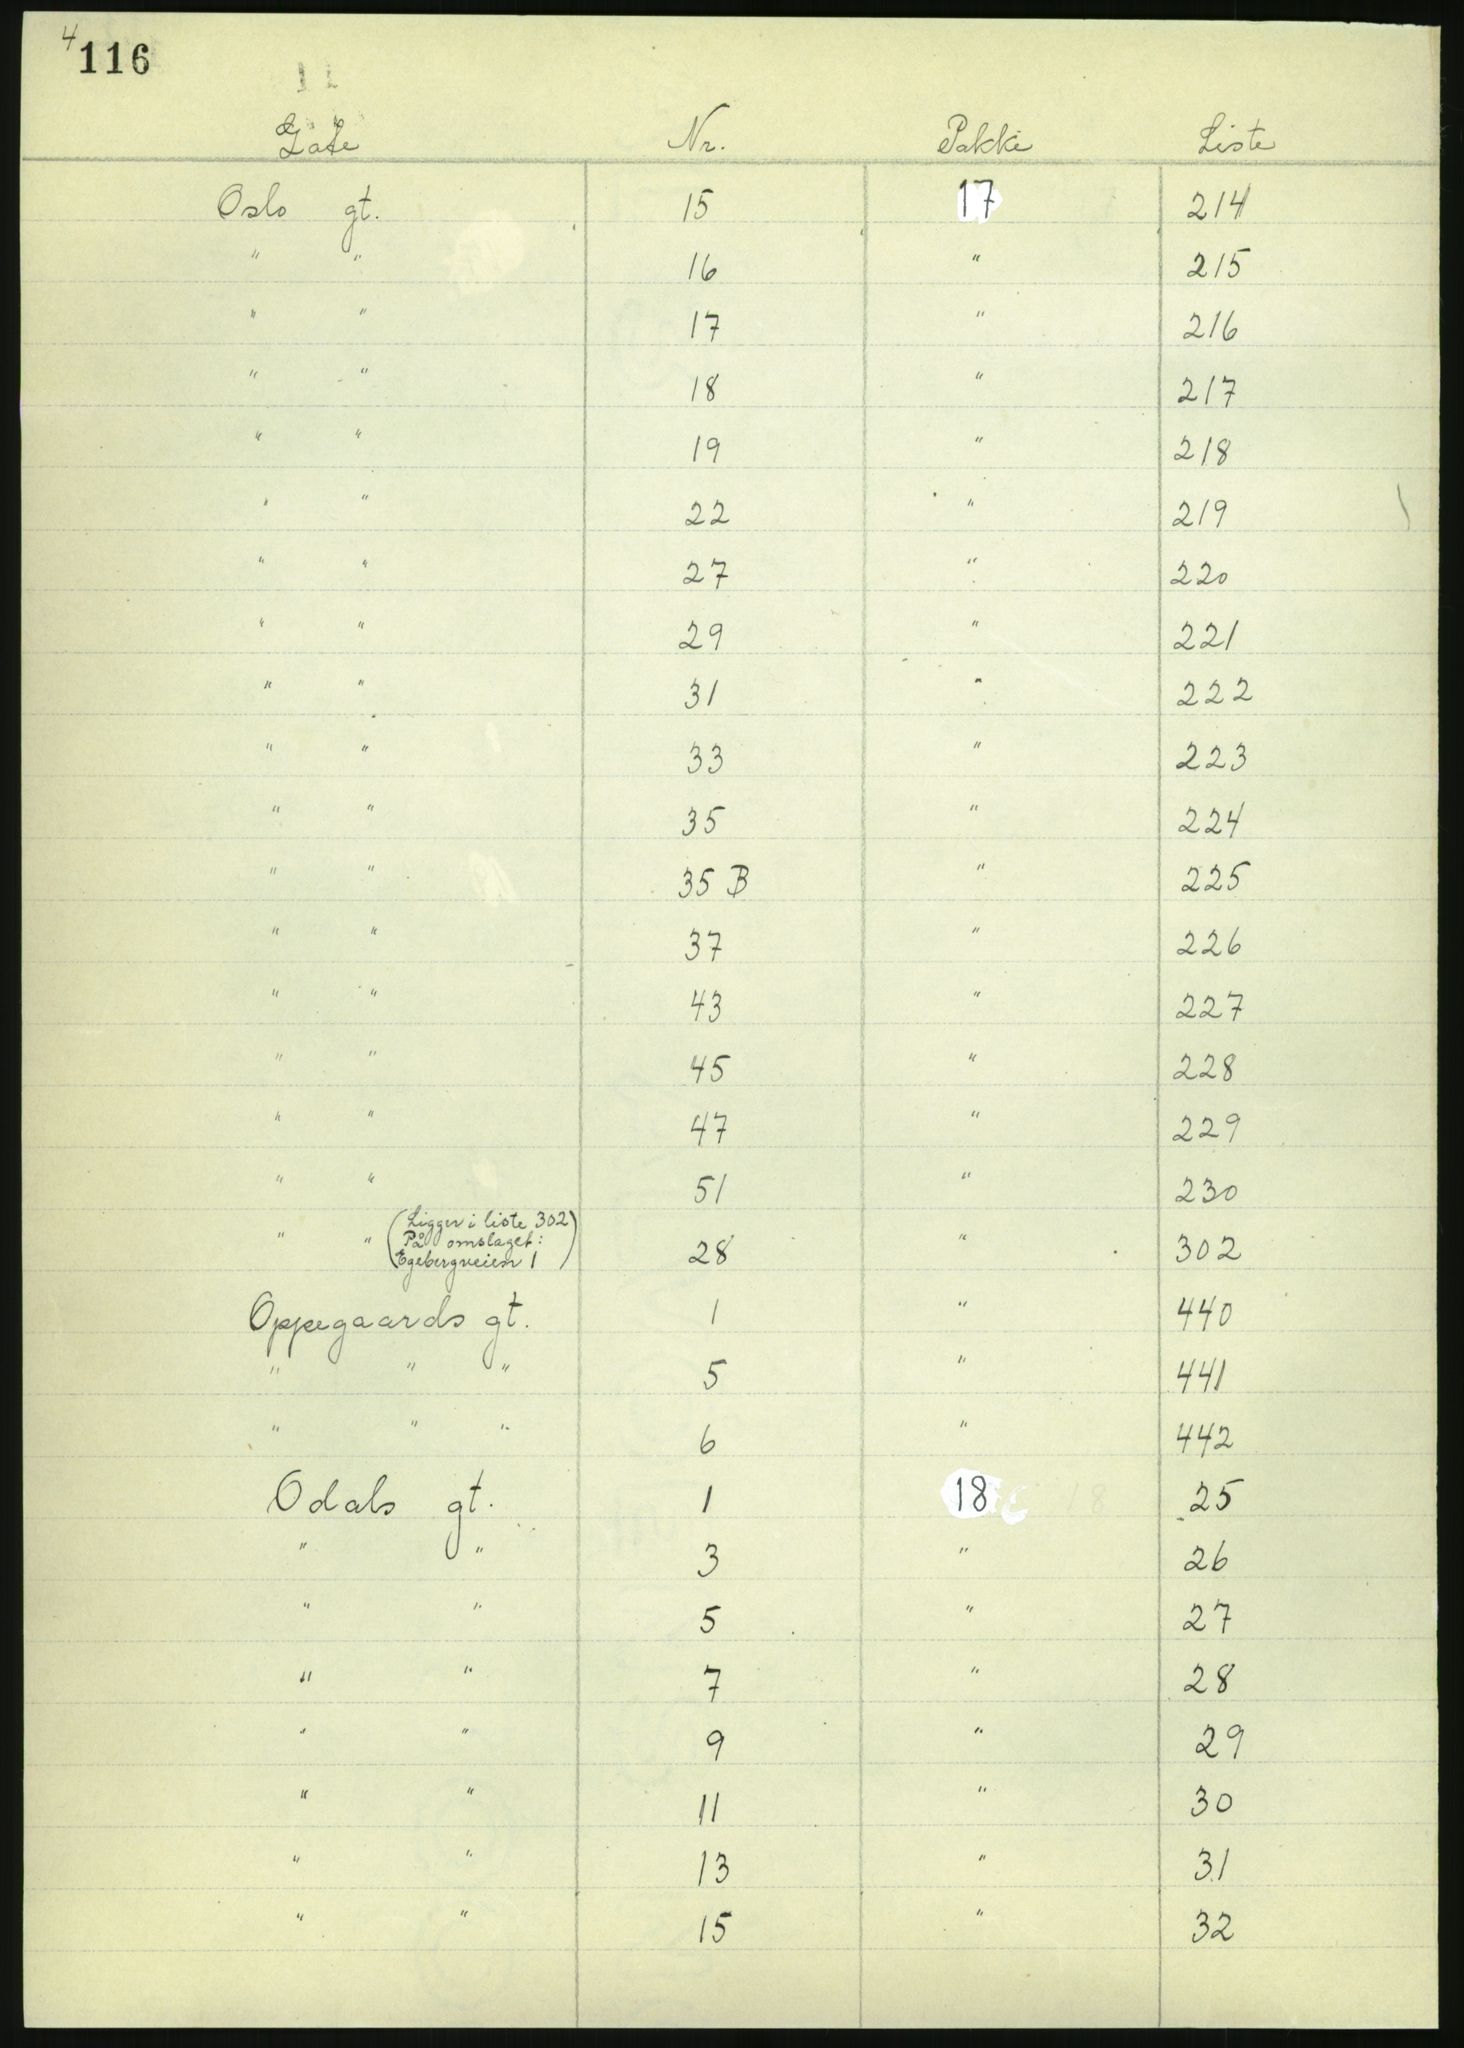 4
116
Gate Nr. Pakke Liste
Oslo gt. 15 17 214
" " 16 " 215
" " 17 " 216
" " 18 " 217
" " 19 " 218
" " 22 " 219
" " 27 " 220
" " 29 " 221
" " 31 " 222
" " 33 " 223
" " 35 " 224
" " 35 B " 225
" " 37 " 226
" " 43 " 227
" " 45 " 228
" " 47 " 229
" " 51 " 230
" " (Ligger i liste 302
På omslaget:
Egebergveien 1) 28 " 302
Oppegaards gt. 1 " 440
" " " 5 " 441
" " " 6 " 442
Odals gt. 1 18 25
" " 3 " 26
" " 5 " 27
" " 7 " 28
" " 9 " 29
" " 11 " 30
" " 13 " 31
" " 15 " 32